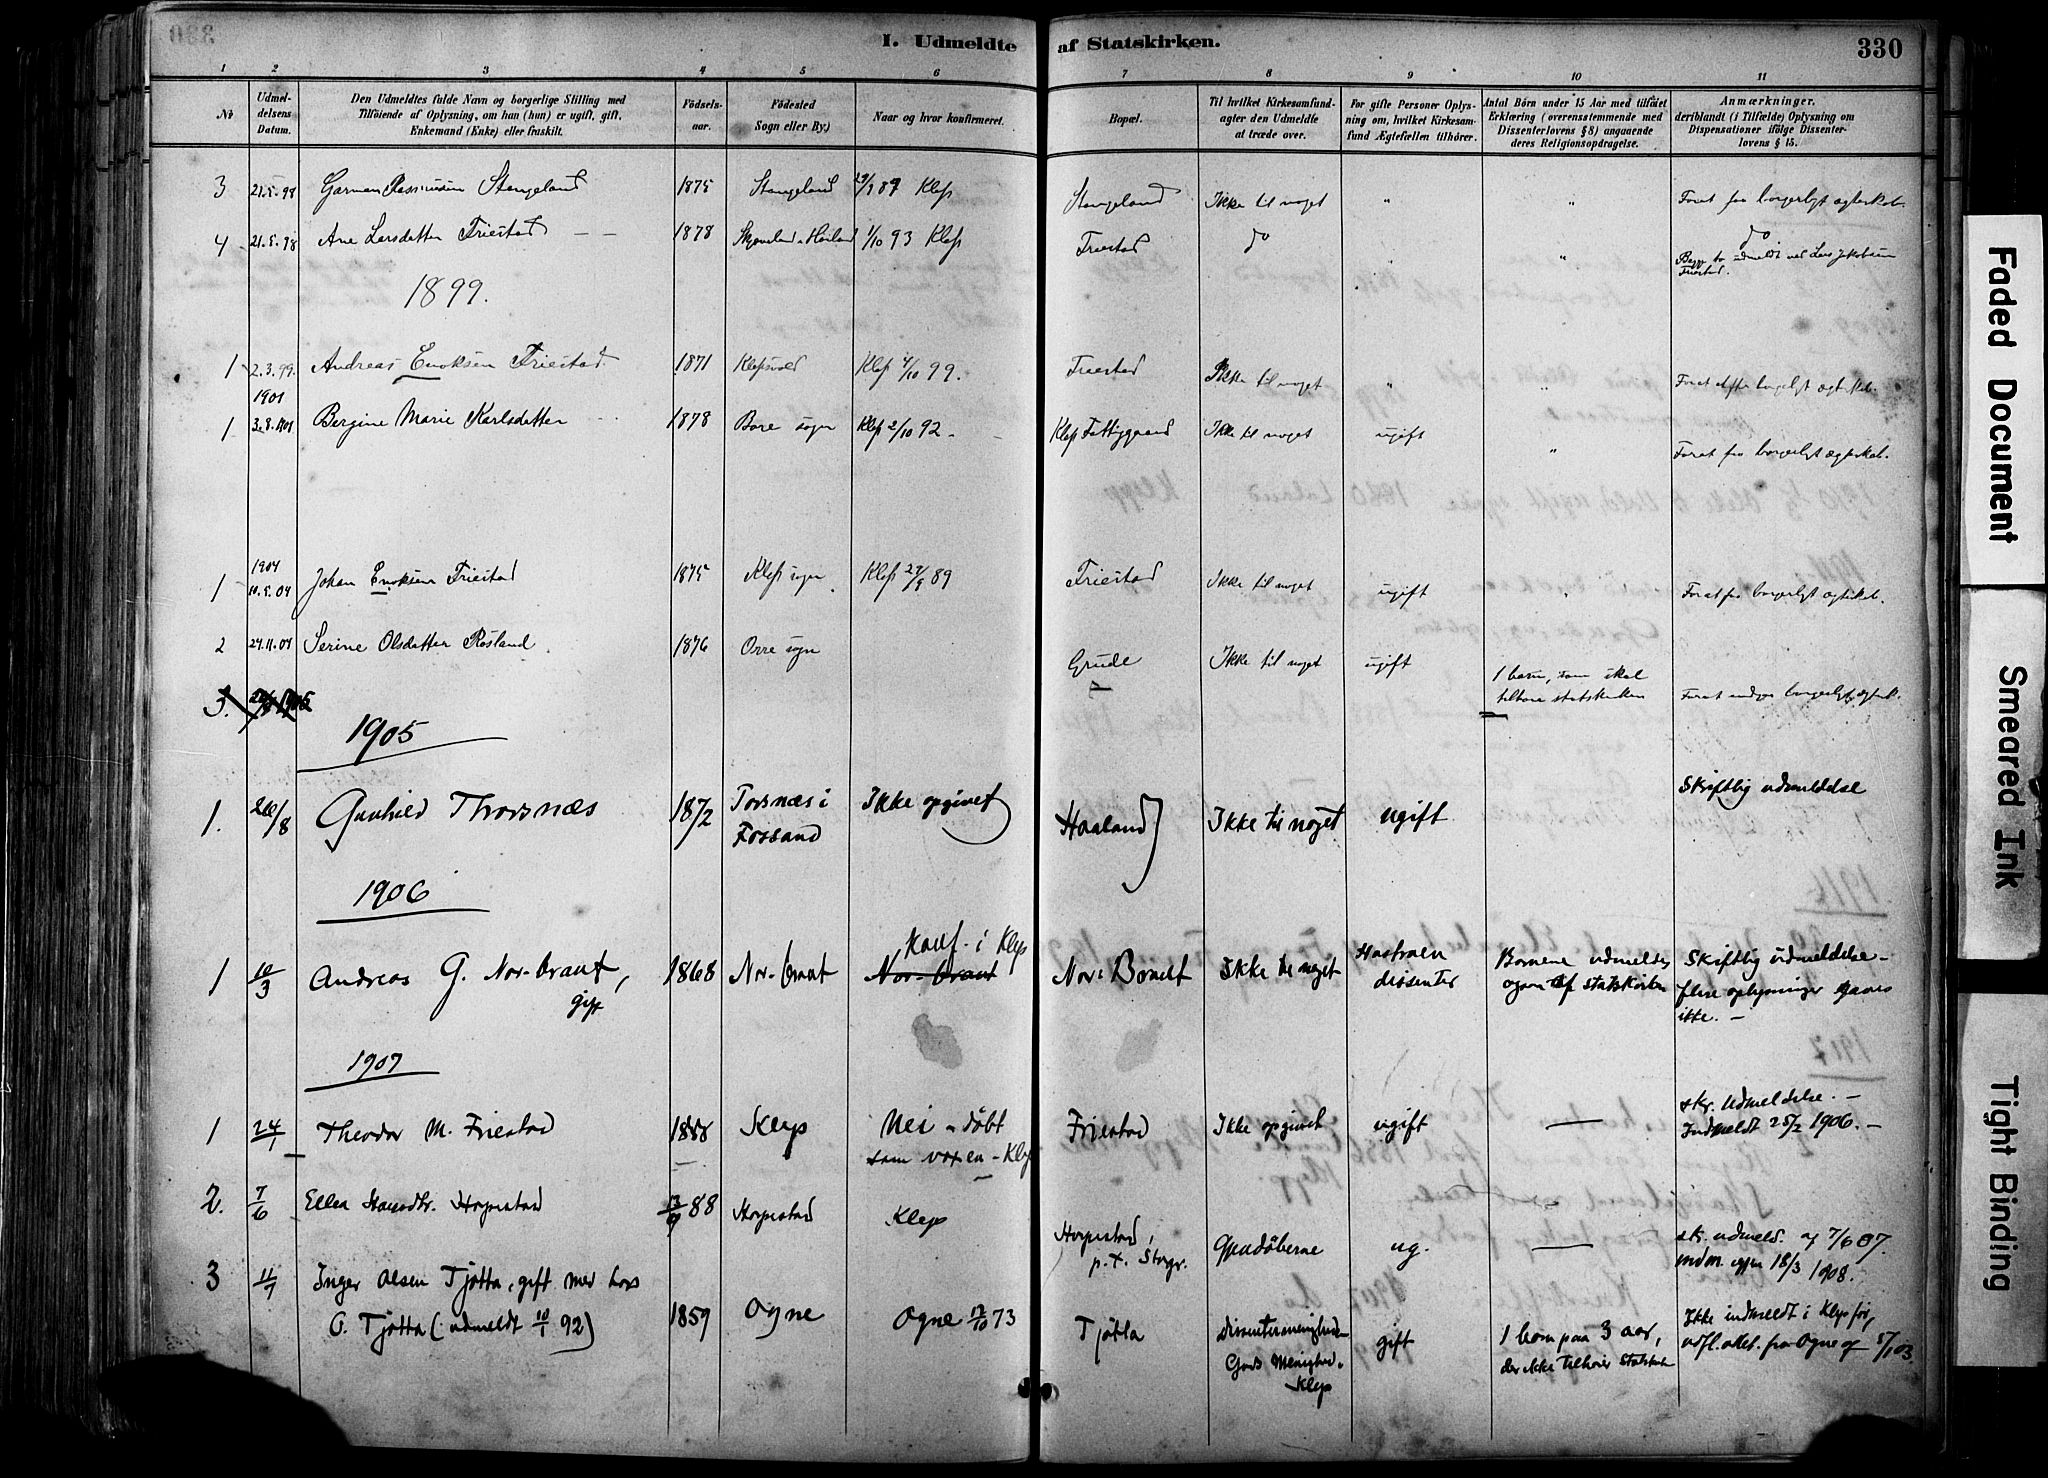 I. Udmeldte af Statskirken.
330
1 2 3 4 5 6 7 8 9 10 11
No
Udmel-
delsens
Datum.
Den Udmeldtes fulde Navn og borgerlige Stilling med
Tilföiende af Oplysning, om han (hun) er ugift, gift,
Enkemand (Enke) eller fraskilt.
Födsels-
aar.
Födested
Sogn eller By.)
Naar og hvor konfirmeret.
Bopæl.
Til hvilket Kirkesamfund-
agter den Udmeldte
at træde over.
For gifte Personer Oplys-
ning om, hvilket Kirkesam-
fund Ægtefællen tilhörer.
Antal Börn under 15 Aar med tilföiet
Erklæring (overensstemmende med
Dissenterlovens § 8) angaaende
deres Religionsopdragelse.
Anmærkninger,
deriblandt (i Tilfælde) Oplysning om
Dispensationer ifölge Dissenter-
lovens § 15.
3 21.5.98 Garman Rasmussen Stangeland 1875 Stangeland 29/9 89 Klep Stangeland Ikke til noget " " Foret faa borgerligt ægteskab.
4 21.5.98 Ane Larsdatter Friestad 1878 1/10 93 Klep Friestad do " " do
Begge to udmeldt ved Lars Jakobsen
Friestad.
1899.
1 2.3.99. Andreas Enoksen Friestad 1871 Klepsvold Klep 4/10 99. Friestad Ikke til noget " " borgerligt ægteskab.
1901
1 3.8.1901 Bergine Marie Karlsdatter 1878 Bore sogn Klep 2/10 92. Klep Fattiggaard Ikke til noget ugift " Foret faa borgerligt ægteskab.
1904
1 10.5.04 Johan Enoksen Friestad 1875 Klep sogn Klep 29/9 89 Friestad Ikke til noget ugift " Foret faa borgerligt ægteskab.
2 24.11.04 Serine Olsdatter Røsland 1876 Orre sogn Grude Ikke til noget ugift 1 barn, som skal
tilhøre statskirken borgerligt ægtesk.
3.
1905
1. 26/8 Gunhild Thorsnæs 1872 Torsnæs i
Fossand Ikke opgivet Haaland Ikke til noget ugift Skriftlig udmeldelse
1906
1 10/3 Andreas G. Nor-braut,
gift 1868 Nor-braut Konf. i Klep
Nor-braut Ikke til noget Hustruen
dissenter Børnene udmeldes
ogsaa af statskirken Skriftlig udmeldelse -
flere oplysninger gaves
ikke. -
1907
1 24/1 Theodor M. Friestad 1888 Klep Nei - døbt
som voxen - Klep Friestad Ikke opgivet ugift — skr. Udmeldelse. -
Indmeldt 25/2 1906. -
2. 7/6 Ellen Hognestad 13/9 88 Hognestad Klep Hognestad,
p. t. Stavgr. Gjendøberne ug. — sk. udmeld. af 7/6 07.
indm. igjen 18/3 1908.
3 11/7 Inger Olsen Tjøtta, gift med Lars
O. Tjøtta (: udmeldt 10/1 92) 1859 Ogne Ogne 12/10 73 Tjøtta Dissentermenigheden
Guds Menighed.
Klep gift 1 barn paa 3 aar,
der ikke tilhører Statskirk Ikke indmeldt i Klep før,
udfl. attest. fra Ogne af 5/1 03.
Faded Document
Smeared Ink
Tight Binding